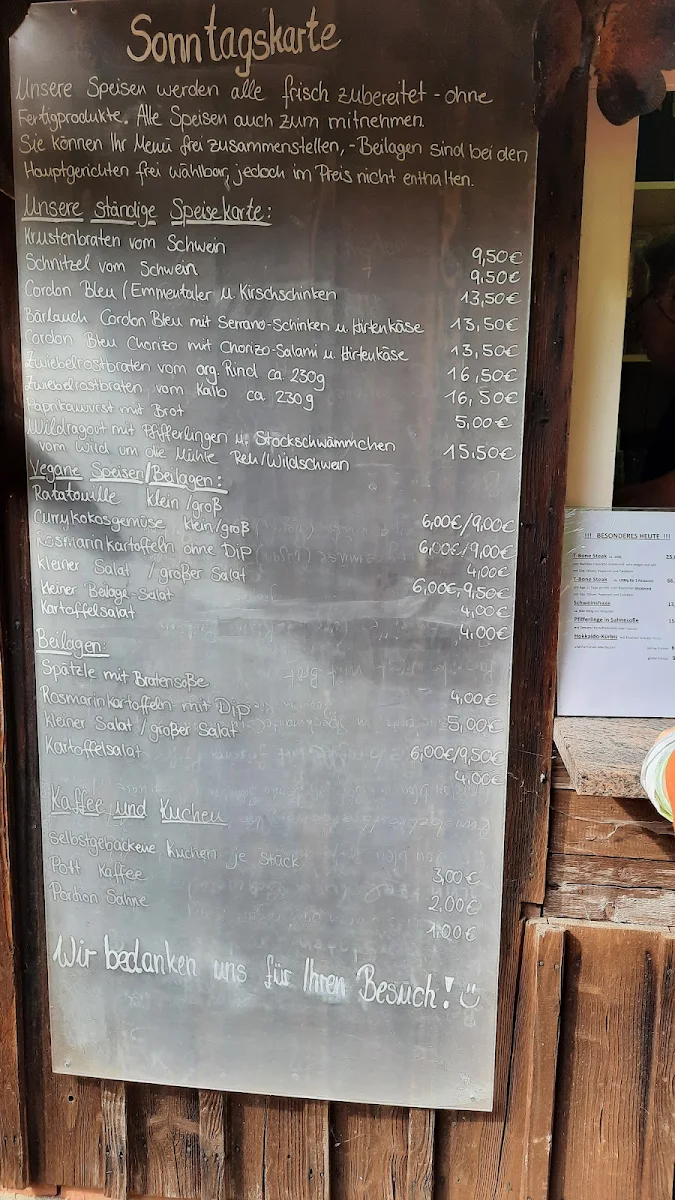 Sonntagskarte
Unsere Speisen werden alle frisch zubereitet - ohne
Fertigprodukte. Alle Speisen auch zum mitnehmen.
Sie können Ihr Menü frei zusammenstellen, - Beilagen sind bei den
Hauptgerichten frei wählbar, jedoch im Preis nicht enthalten.
Unsere Ständige Speisekarte:
Krustenbraten vom Schwein 9,50€
Schnitzel vom Schwein 9,50€
Cordon Bleu / Emmentaler u. Kirschschinken 13,50€
Bärlauch Cordon Bleu mit Serrano-Schinken u. Hirtenkäse 13,50€
Cordon Bleu Chorizo mit Chorizo-Salami u. Hirtenkäse 13,50€
Zwiebelrostbraten vom arg. Rind ca 230g 16,50€
Zwiebelrostbraten vom Kalb ca 230g 16,50€
Paprikawurst mit Brot 5,00€
Wildragout mit Pfifferlingen u. Stockschwämmchen 15,50€
vom Wild um die Mühle Reh/Wildschwein
Vegane Speisen/Beilagen:
Ratatouille klein/groß 6,00€/9,00€
Currykokosgemüse klein/groß 6,00€/9,00€
Rosmarinkartoffeln ohne Dip 4,00€
Kleiner Salat / großer Salat 6,00€,9,50€
kleiner Beilage-Salat 4,00€
Kartoffelsalat 4,00€
Beilagen:
Spätzle mit Bratensoße 4,00€
Rosmarinkartoffeln mit Dip 5,00€
Kleiner Salat / großer Salat 6,00€/9,50€
Kartoffelsalat 4,00€
Kaffee und Kuchen
selbstgebackene Kuchen je Stück 3,00€
Pott Kaffee 2,00€
Portion Sahne 1,00€
Wir bedanken uns für Ihren Besuch!
!!! BESONDERES HEUTE !!!
T-Bone Steak
T-Bone Steak
Schweinshaxe
Pfifferlinge in Sahnesoße
Hokkaido-Kürbis